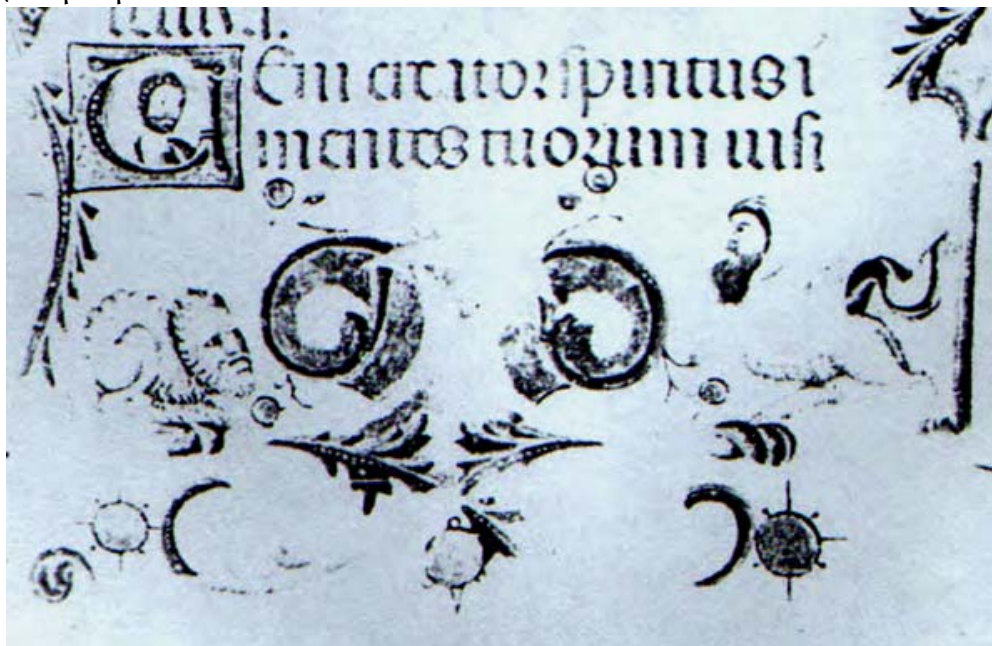 VEni creator spiritus
mentes tuorum visi